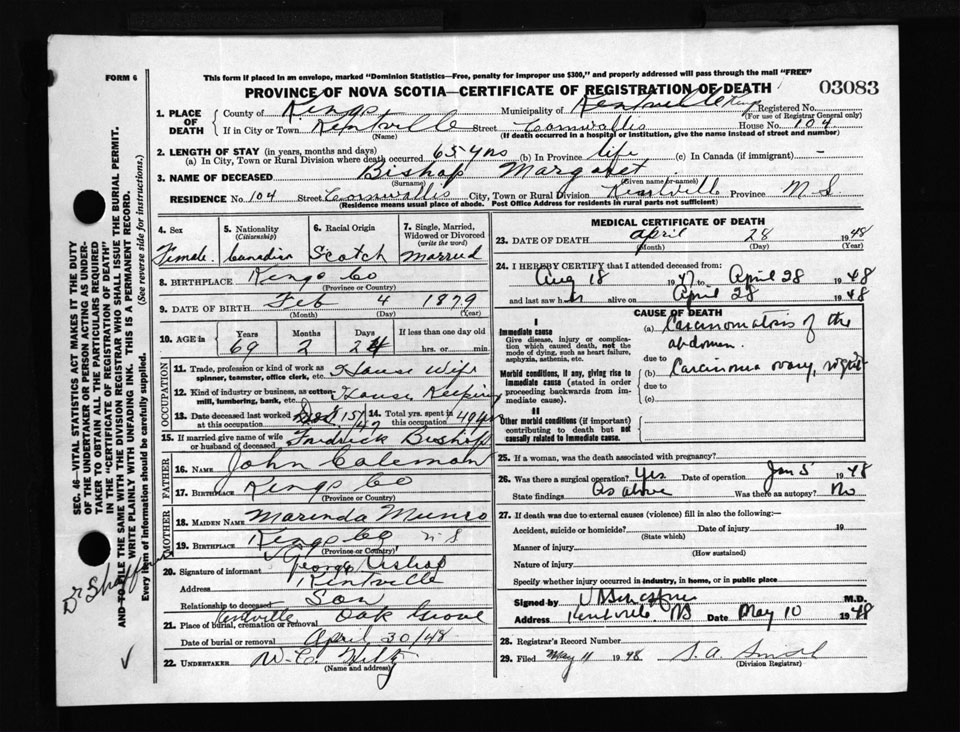 FORM 6
This form if placed in an envelope, marked "Dominion Statistics—Free, penalty for improper use $300," and properly addressed will pass through the mail "FREE"
PROVINCE OF NOVA SCOTIA—CERTIFICATE OF REGISTRATION OF DEATH
03083
1. PLACE OF DEATH
County of Kings Municipality of Kentville Registered No.
(For use of Registrar General only)
If in City or Town Kentville Street Cornwallis House No. 104
(Name) (If death occurred in a hospital or institution, give the name instead of street and number)
2. LENGTH OF STAY (in years, months and days)
(a) In City, Town or Rural Division where death occurred 65 yrs (b) In Province life (c) In Canada (if immigrant) -
3. NAME OF DECEASED Bishop Margaret
(Surname) (Given name or names)
RESIDENCE No. 104 Street Cornwallis City, Town or Rural Division Kentville Province N.S.
(Residence means usual place of abode. Post Office Address for residents in rural parts not sufficient)
4. Sex 5. Nationality (Citizenship) 6. Racial Origin 7. Single, Married, Widowed or Divorced (write the word)
Female Canadian Scotch Married
8. BIRTHPLACE Kings Co
(Province or Country)
9. DATE OF BIRTH Feb 4 1879
(Month) (Day) (Year)
10. AGE in Years Months Days If less than one day old
69 2 24 hrs. or min.
OCCUPATION
11. Trade, profession or kind of work as spinner, teamster, office clerk, etc. House Wife
12. Kind of industry or business, as cotton-mill, lumbering, bank, etc. House Keeping
13. Date deceased last worked at this occupation 15/47 14. Total yrs. spent in this occupation 49 yrs
15. If married give name of wife or husband of deceased Fredrick Bishop
FATHER
16. NAME John Coleman
17. BIRTHPLACE Kings Co
(Province or Country)
MOTHER
18. MAIDEN NAME Marinda Munro
19. BIRTHPLACE Kings Co N S
(Province or Country)
20. Signature of informant George Bishop
Address Kentville
Relationship to deceased Son
21. Place of burial, cremation or removal Kentville Oak Grove
Date of burial or removal April 30/48
22. UNDERTAKER W. C.
(Name and address)
MEDICAL CERTIFICATE OF DEATH
23. DATE OF DEATH April 28 1948
(Month) (Day) (Year)
24. I HEREBY CERTIFY that I attended deceased from:
Aug 18 1947 to April 28 1948
and last saw her alive on April 28 1948
CAUSE OF DEATH
I
Immediate cause
Give disease, injury or complication which caused death, not the mode of dying, such as heart failure, asphyxia, asthenia, etc.
(a) Carcinomatosis of the abdomen.
due to
Morbid conditions, if any, giving rise to immediate cause (stated in order proceeding backwards from immediate cause).
(b) Carcinoma ovary, right
due to
(c)
II
Other morbid conditions (if important) contributing to death but not causally related to immediate cause.
25. If a woman, was the death associated with pregnancy?
26. Was there a surgical operation? Yes Date of operation Jan 5 1948
State findings As above Was there an autopsy? No
27. If death was due to external causes (violence) fill in also the following:—
Accident, suicide or homicide? Date of injury 19
(State which)
Manner of injury
(How sustained)
Nature of injury
Specify whether injury occurred in industry, in home, or in public place
Signed by M.D.
Address Kentville NS Date May 10 1948
28. Registrar's Record Number
29. Filed May 11 1948 S. A.
(Division Registrar)
SEC. 46—VITAL STATISTICS ACT MAKES IT THE DUTY
OF THE UNDERTAKER OR PERSON ACTING AS UNDER-
TAKER TO OBTAIN ALL THE PARTICULARS REQUIRED
IN THE "CERTIFICATE OF REGISTRATION OF DEATH"
AND TO FILE THE SAME WITH THE DIVISION REGISTRAR WHO SHALL ISSUE THE BURIAL PERMIT.
WRITE PLAINLY WITH UNFADING INK. THIS IS A PERMANENT RECORD.
Every item of information should be carefully supplied. (See reverse side for instructions.)